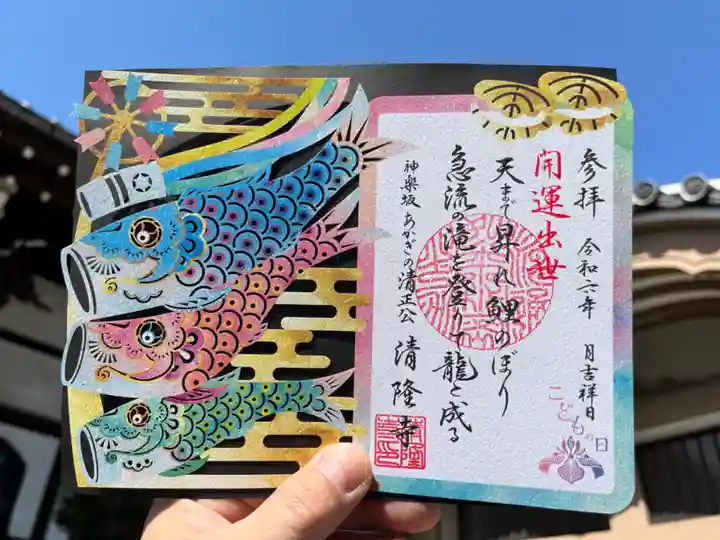 参拝 令和六年 月吉祥日
開運出世
天まで昇れ鯉のぼり
急流の滝を登りて龍と成る
神楽坂あかぎの清正公 清隆寺
こどもの日